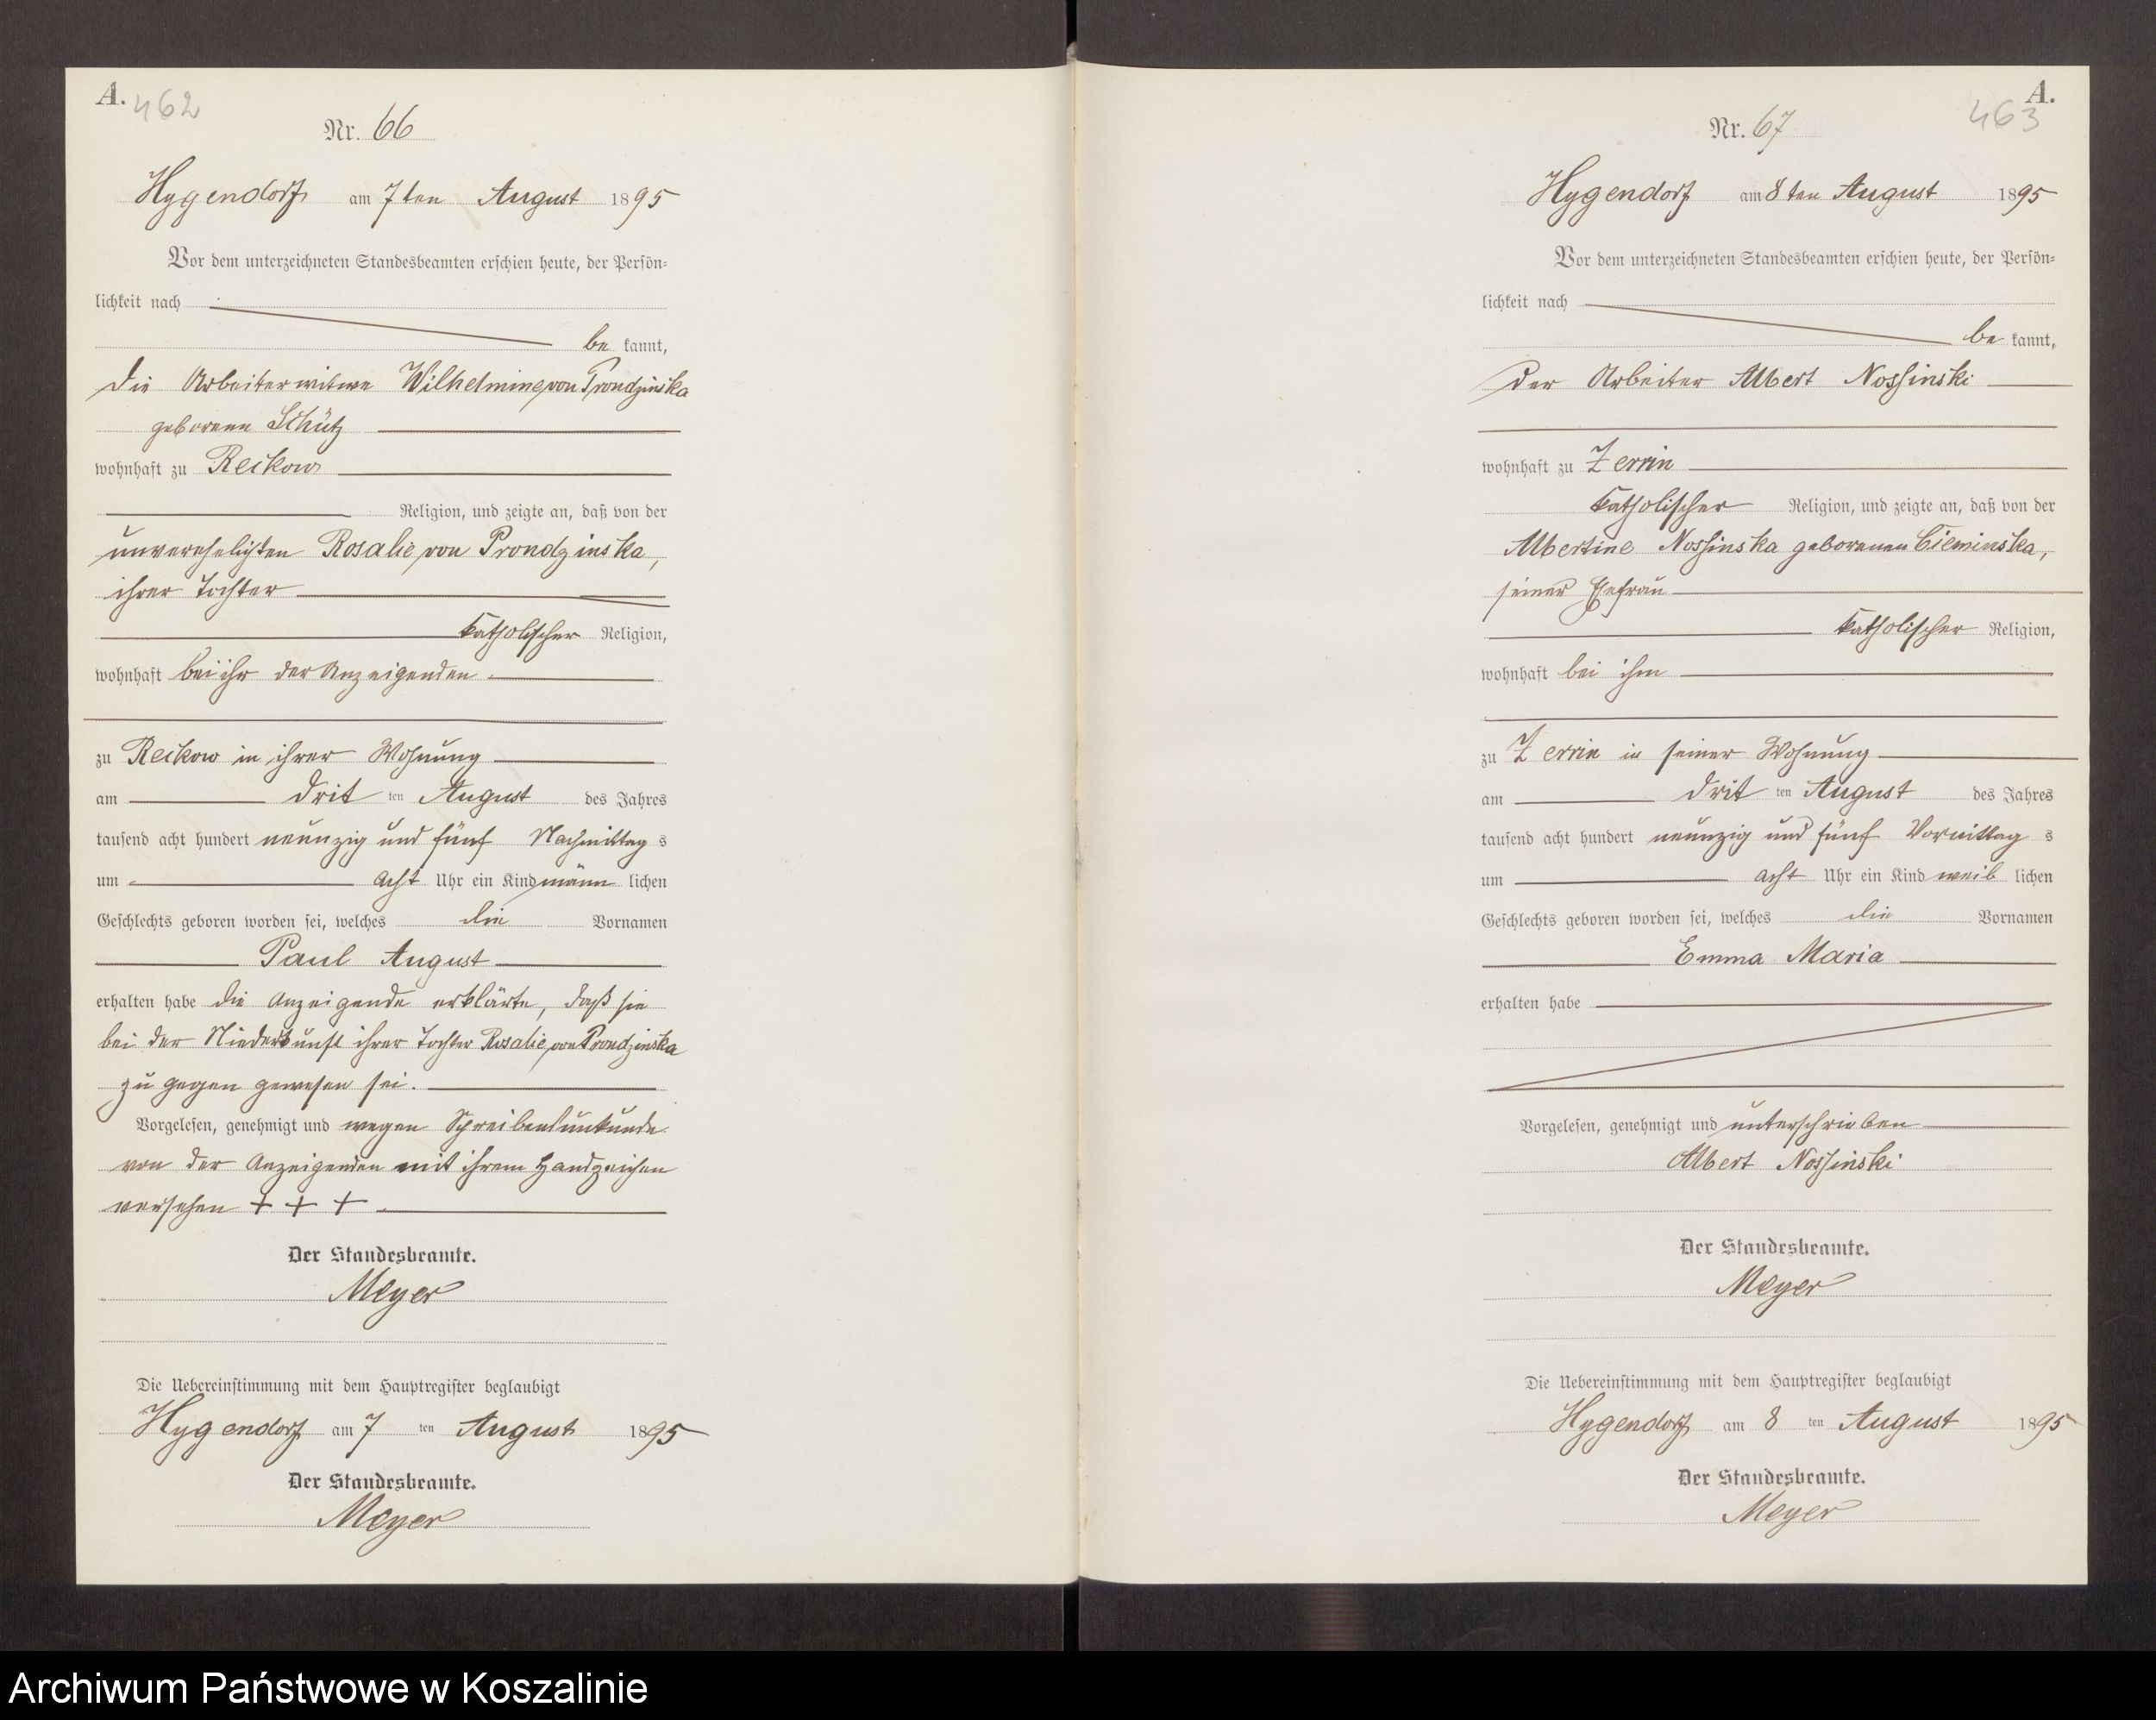 A. 462
Nr. 66
Hygendorf am 7ten August 1895
Vor dem unterzeichneten Standesbeamten erschien heute, der Persön-
lichkeit nach
be kannt,
die Arbeiterwitwe Wilhelmine von Prondzinska
geborene Schütz
wohnhaft zu Reckow
Religion, und zeigte an, daß von der
unverehelichten Rosalie von Prondzinska,
ihrer Tochter
katholischer Religion,
wohnhaft bei ihr der Anzeigenden
zu Reckow in ihrer Wohnung
am drit ten August des Jahres
tausend acht hundert neunzig und fünf Nachmittag s
um acht Uhr ein Kind männ lichen
Geschlechts geboren worden sei, welches die Vornamen
Paul August
erhalten habe die Anzeigende erklärte, daß sie
bei der Niederkunft ihrer Tochter Rosalie von Prondzinska
zu gegen gewesen sei.
Vorgelesen, genehmigt und wegen Schreibensunkunde
von der Anzeigenden mit ihrem Handzeichen
versehen + + +
Der Standesbeamte.
Meyer
Die Uebereinstimmung mit dem Hauptregister beglaubigt
Hygendorf am 7 ten August 1895
Der Standesbeamte.
Meyer
A.
463
Nr. 67
Hygendorf am 8ten August 1895
Vor dem unterzeichneten Standesbeamten erschien heute, der Persön-
lichkeit nach
be kannt,
der Arbeiter Albert Nossinski
wohnhaft zu Zerrin
katholischer Religion, und zeigte an, daß von der
Albertine Nossinska geborenen Cieminska,
seiner Ehefrau
katholischer Religion,
wohnhaft bei ihm
zu Zerrin in seiner Wohnung
am drit ten August des Jahres
tausend acht hundert neunzig und fünf Vormittag s
um acht Uhr ein Kind weib lichen
Geschlechts geboren worden sei, welches die Vornamen
Emma Maria
erhalten habe
Vorgelesen, genehmigt und unterschrieben
Albert Nossinski
Der Standesbeamte.
Meyer
Die Uebereinstimmung mit dem Hauptregister beglaubigt
Hygendorf am 8 ten August 1895
Der Standesbeamte.
Meyer
Archiwum Państwowe w Koszalinie